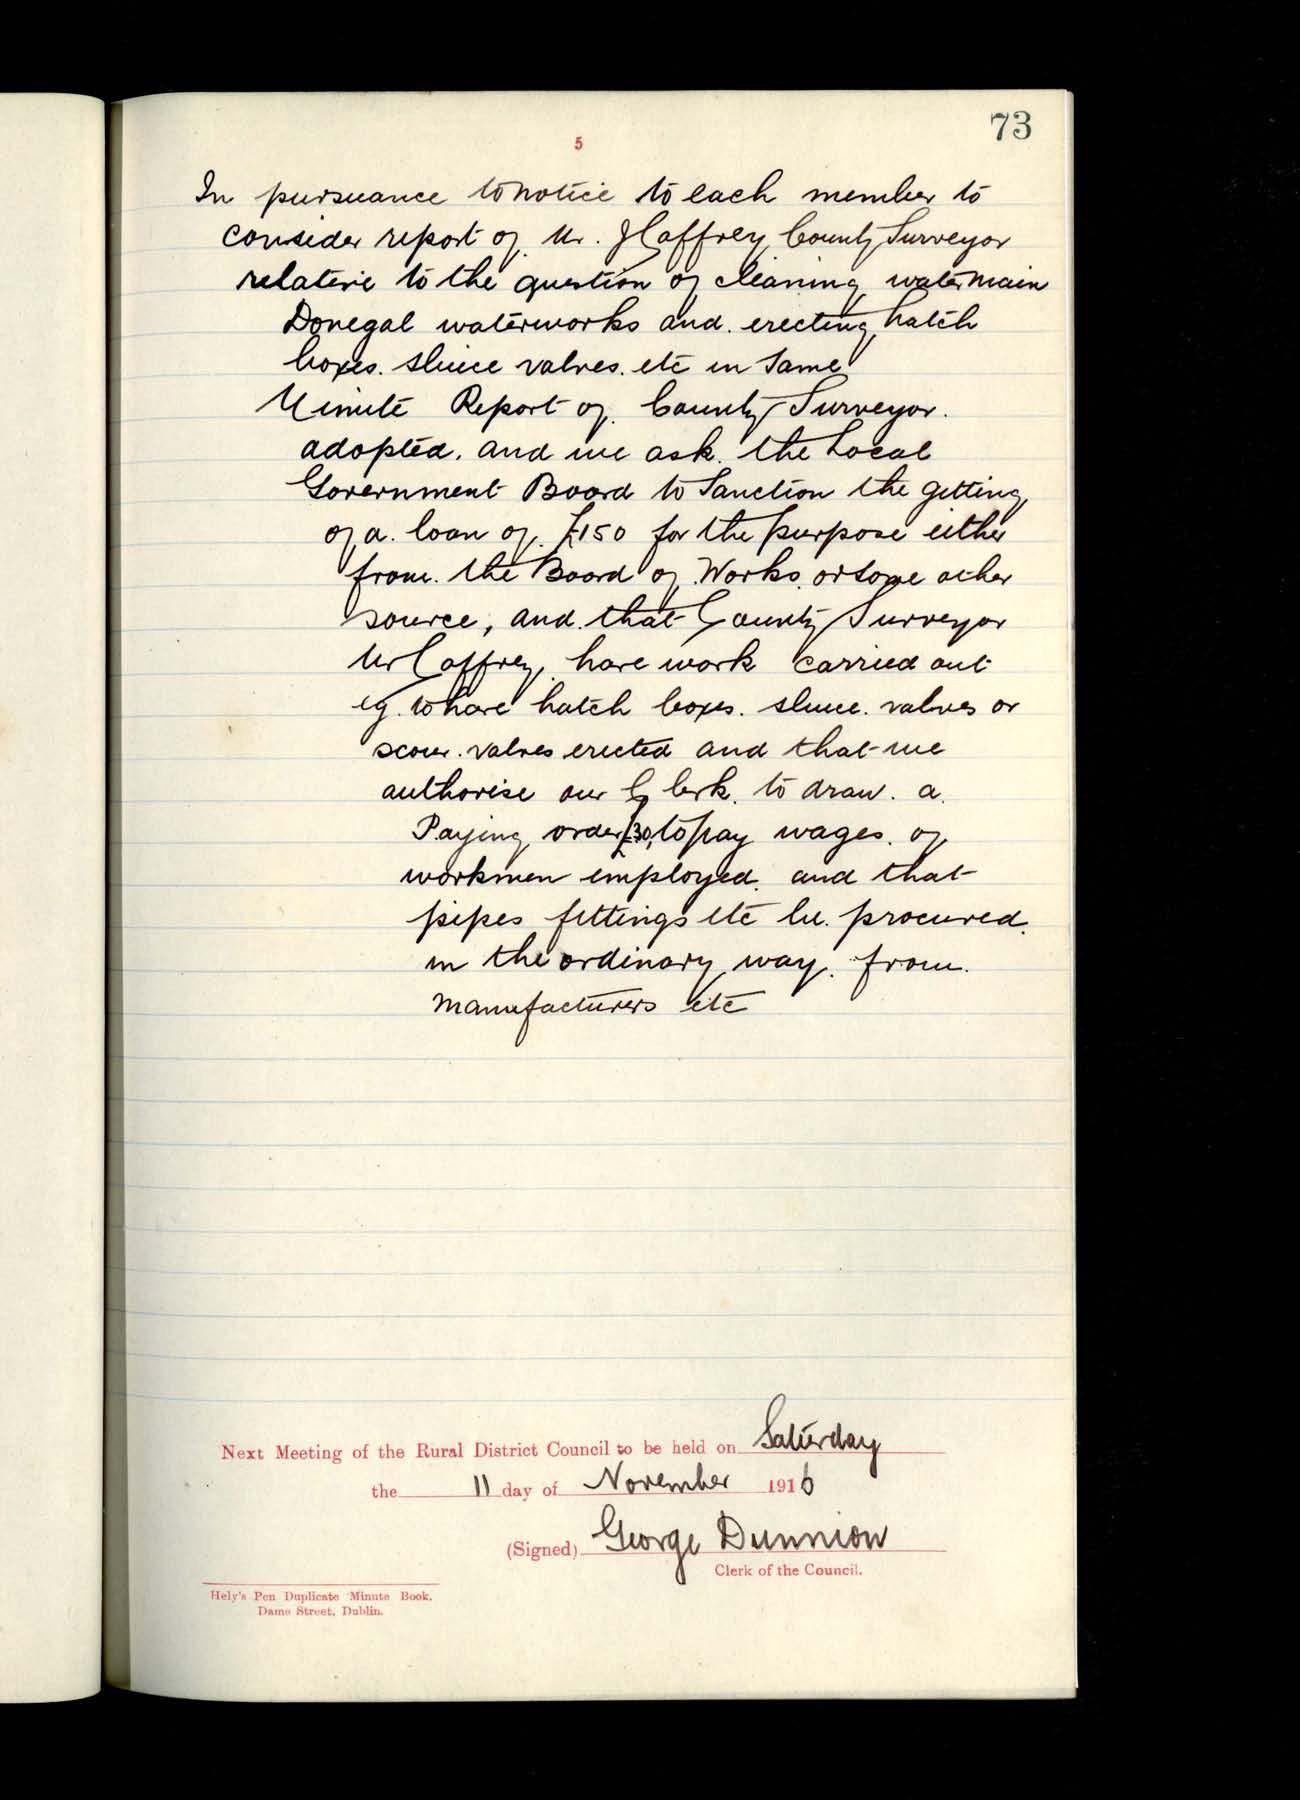 73
5
In pursuance to notice to each member to
consider report of Mr. J Caffrey County Surveyor
relative to the question of cleaning water main
Donegal waterworks and. erecting hatch
boxes. sluice valves. etc in same
Minute Report of County Surveyor.
adopted. and we ask. the Local
Government Board to Sanction the getting
of a. loan of. £150 for the purpose either
from. the Board of Works. or some other
source, and. that County Surveyor
Mr Caffrey, have work carried out
eg. to have hatch boxes. sluice. valves or
scour. valves erected and that we
authorise our Clerk. to draw. a.
Paying order £30, to pay wages. of
workmen employed. and that
pipes fittings etc be. procured.
in the ordinary way. from.
manufacturers etc
Next Meeting of the Rural District Council to be held on Saturday
the 11 day of November 1916
(Signed) George Dunnion
Clerk of the Council.
Hely's Pen Duplicate Minute Book.
Dame Street, Dublin.